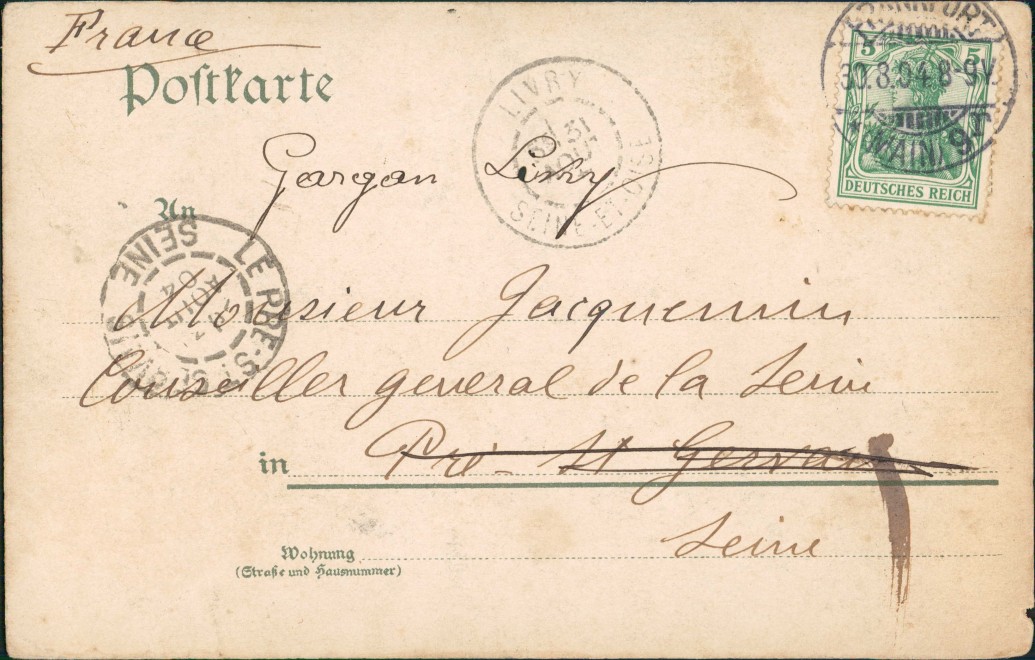 France
Postkarte
FRANKFURT
30.8.04.8-9V.
(MAIN) 9
5 5
DEUTSCHES REICH
LIVRY
31
AOUT
SEINE-ET-OISE
Gargan Livry
An
LE PRE-ST
SEINE
AOUT
04
Monsieur Jacquemin
Conseiller general de la Seine
in Pré-St Gervais
Seine
Wohnung
(Straße und Hausnummer)